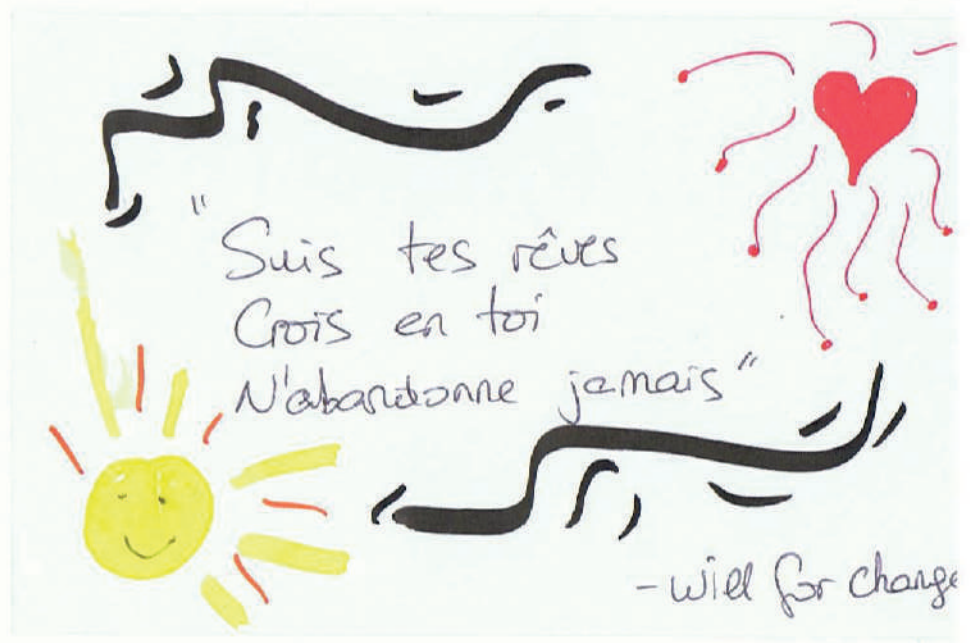 "Suis tes rêves
Crois en toi
N'abandonne jamais"
- will for change